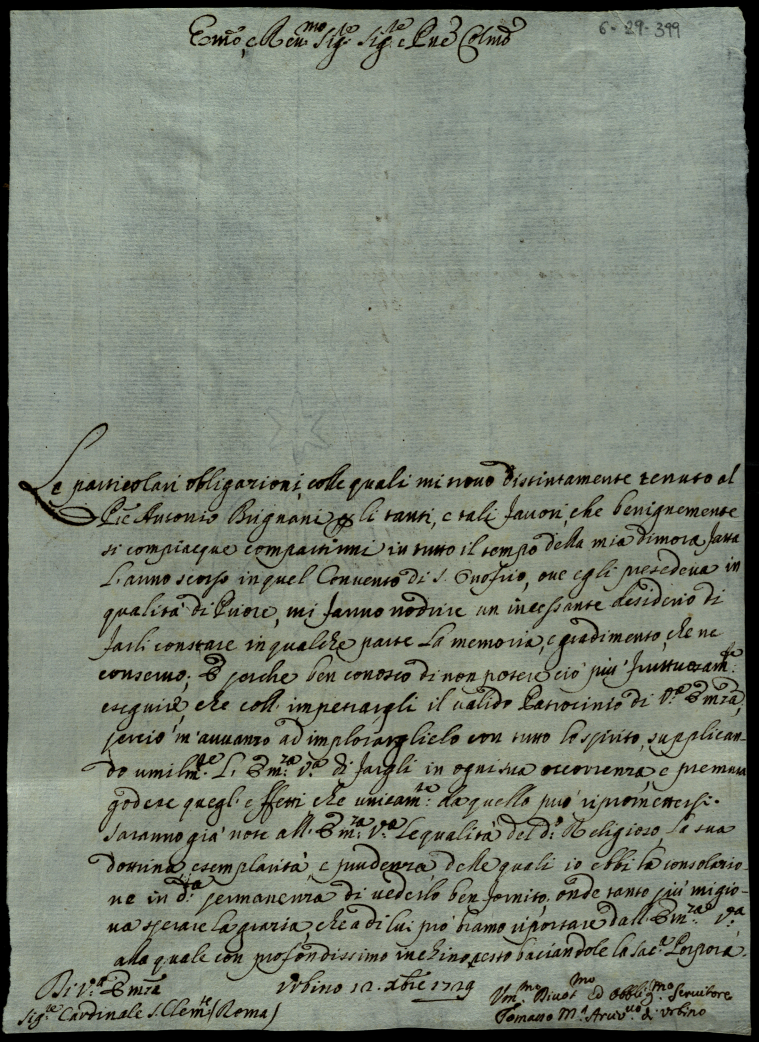 Emo, e Reu.mo Sig.re Sig.re e Pne Colmo
6-29-399
Le particolari obligazioni, colle quali mi trovo distintamente tenuto al
Pre Antonio Brignani per li tanti, e tali favori, che benignemente
si compiacque compartirmi in tutto il tempo della mia dimora fatta
l'anno scorso in quel Convento di S. Onofrio, ove egli presedeva in
qualità di Priore, mi fanno nodrire un incessante desiderio di
farli constare in qualche parte la memoria, e gradimento, che ne
conservo; E perche ben conosco di non potere ciò più fruttuozam.te
eseguire, che coll' impetrargli il valido Patrocinio di V.a Emza,
perciò m'avvanzo ad implorarglielo con tutto lo spirito, supplican-
do umilm.te L' Em.za V.a di fargli in ogni sua occorrenza, e premura
godere quegl' effetti che unicam.te da quello può ripromettersi.
Saranno già note all' Em.za V.a le qualità del d.o Religioso, la sua
dottrina, esemplarità, e prudenza, delle quali io ebbi la consolazio-
ne in d.a permanenza di vederlo ben fornito, onde tanto più mi gio-
va sperare la grazia, che a di lui prò bramo riportare dall' Em.za V.a
alla quale con profondissimo inchino resto baciandole la Sac.a Porpora.
Di V.a Emza
Urbino 12. Xbre 1729
Sig.re Cardinale S. Clem.te (Roma)
Um.mo Divot.mo ed Obblig.mo Servitore
Tomaso M.a Arciv.uo di Urbino